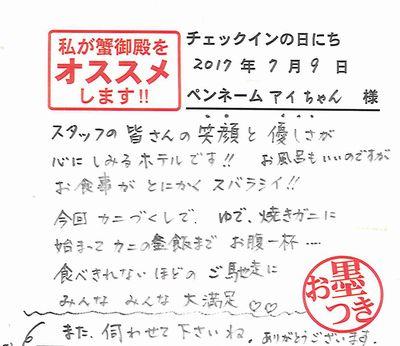 私が蟹御殿を
オススメ
します!!
チェックインの日にち
2017年7月9日
ペンネーム アイちゃん 様
スタッフの皆さんの笑顔と優しさが
心にしみるホテルです!! お風呂もいいのですが
お食事がとにかくスバラシイ!!
今回カニづくしで、ゆで、焼きガニに
始まってカニの釜飯までお腹一杯‥‥
食べきれないほどのご馳走に
みんなみんな大満足♡♡
また、伺わせて下さいね。ありがとうございます。
お墨つき